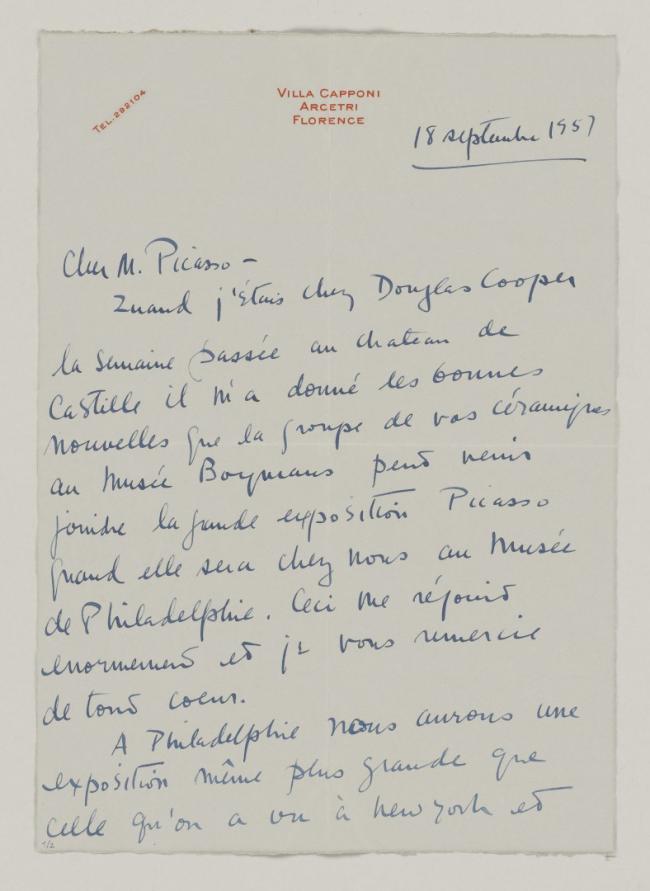 TEL. 292104
VILLA CAPPONI
ARCETRI
FLORENCE
18 septembre 1957
Cher M. Picasso –
Quand j'étais chez Douglas Cooper
la semaine passée au chateau de
Castille il m'a donné les bonnes
nouvelles que la groupe de vos céramiques
au Musée Boymans peut venir
joindre la grande exposition Picasso
quand elle sera chez nous au Musée
de Philadelphie. Ceci me réjouit
enormement et je vous remercie
de tout coeur.
A Philadelphie nous aurons une
exposition même plus grande que
celle qu'on a vu à New York et
1/2